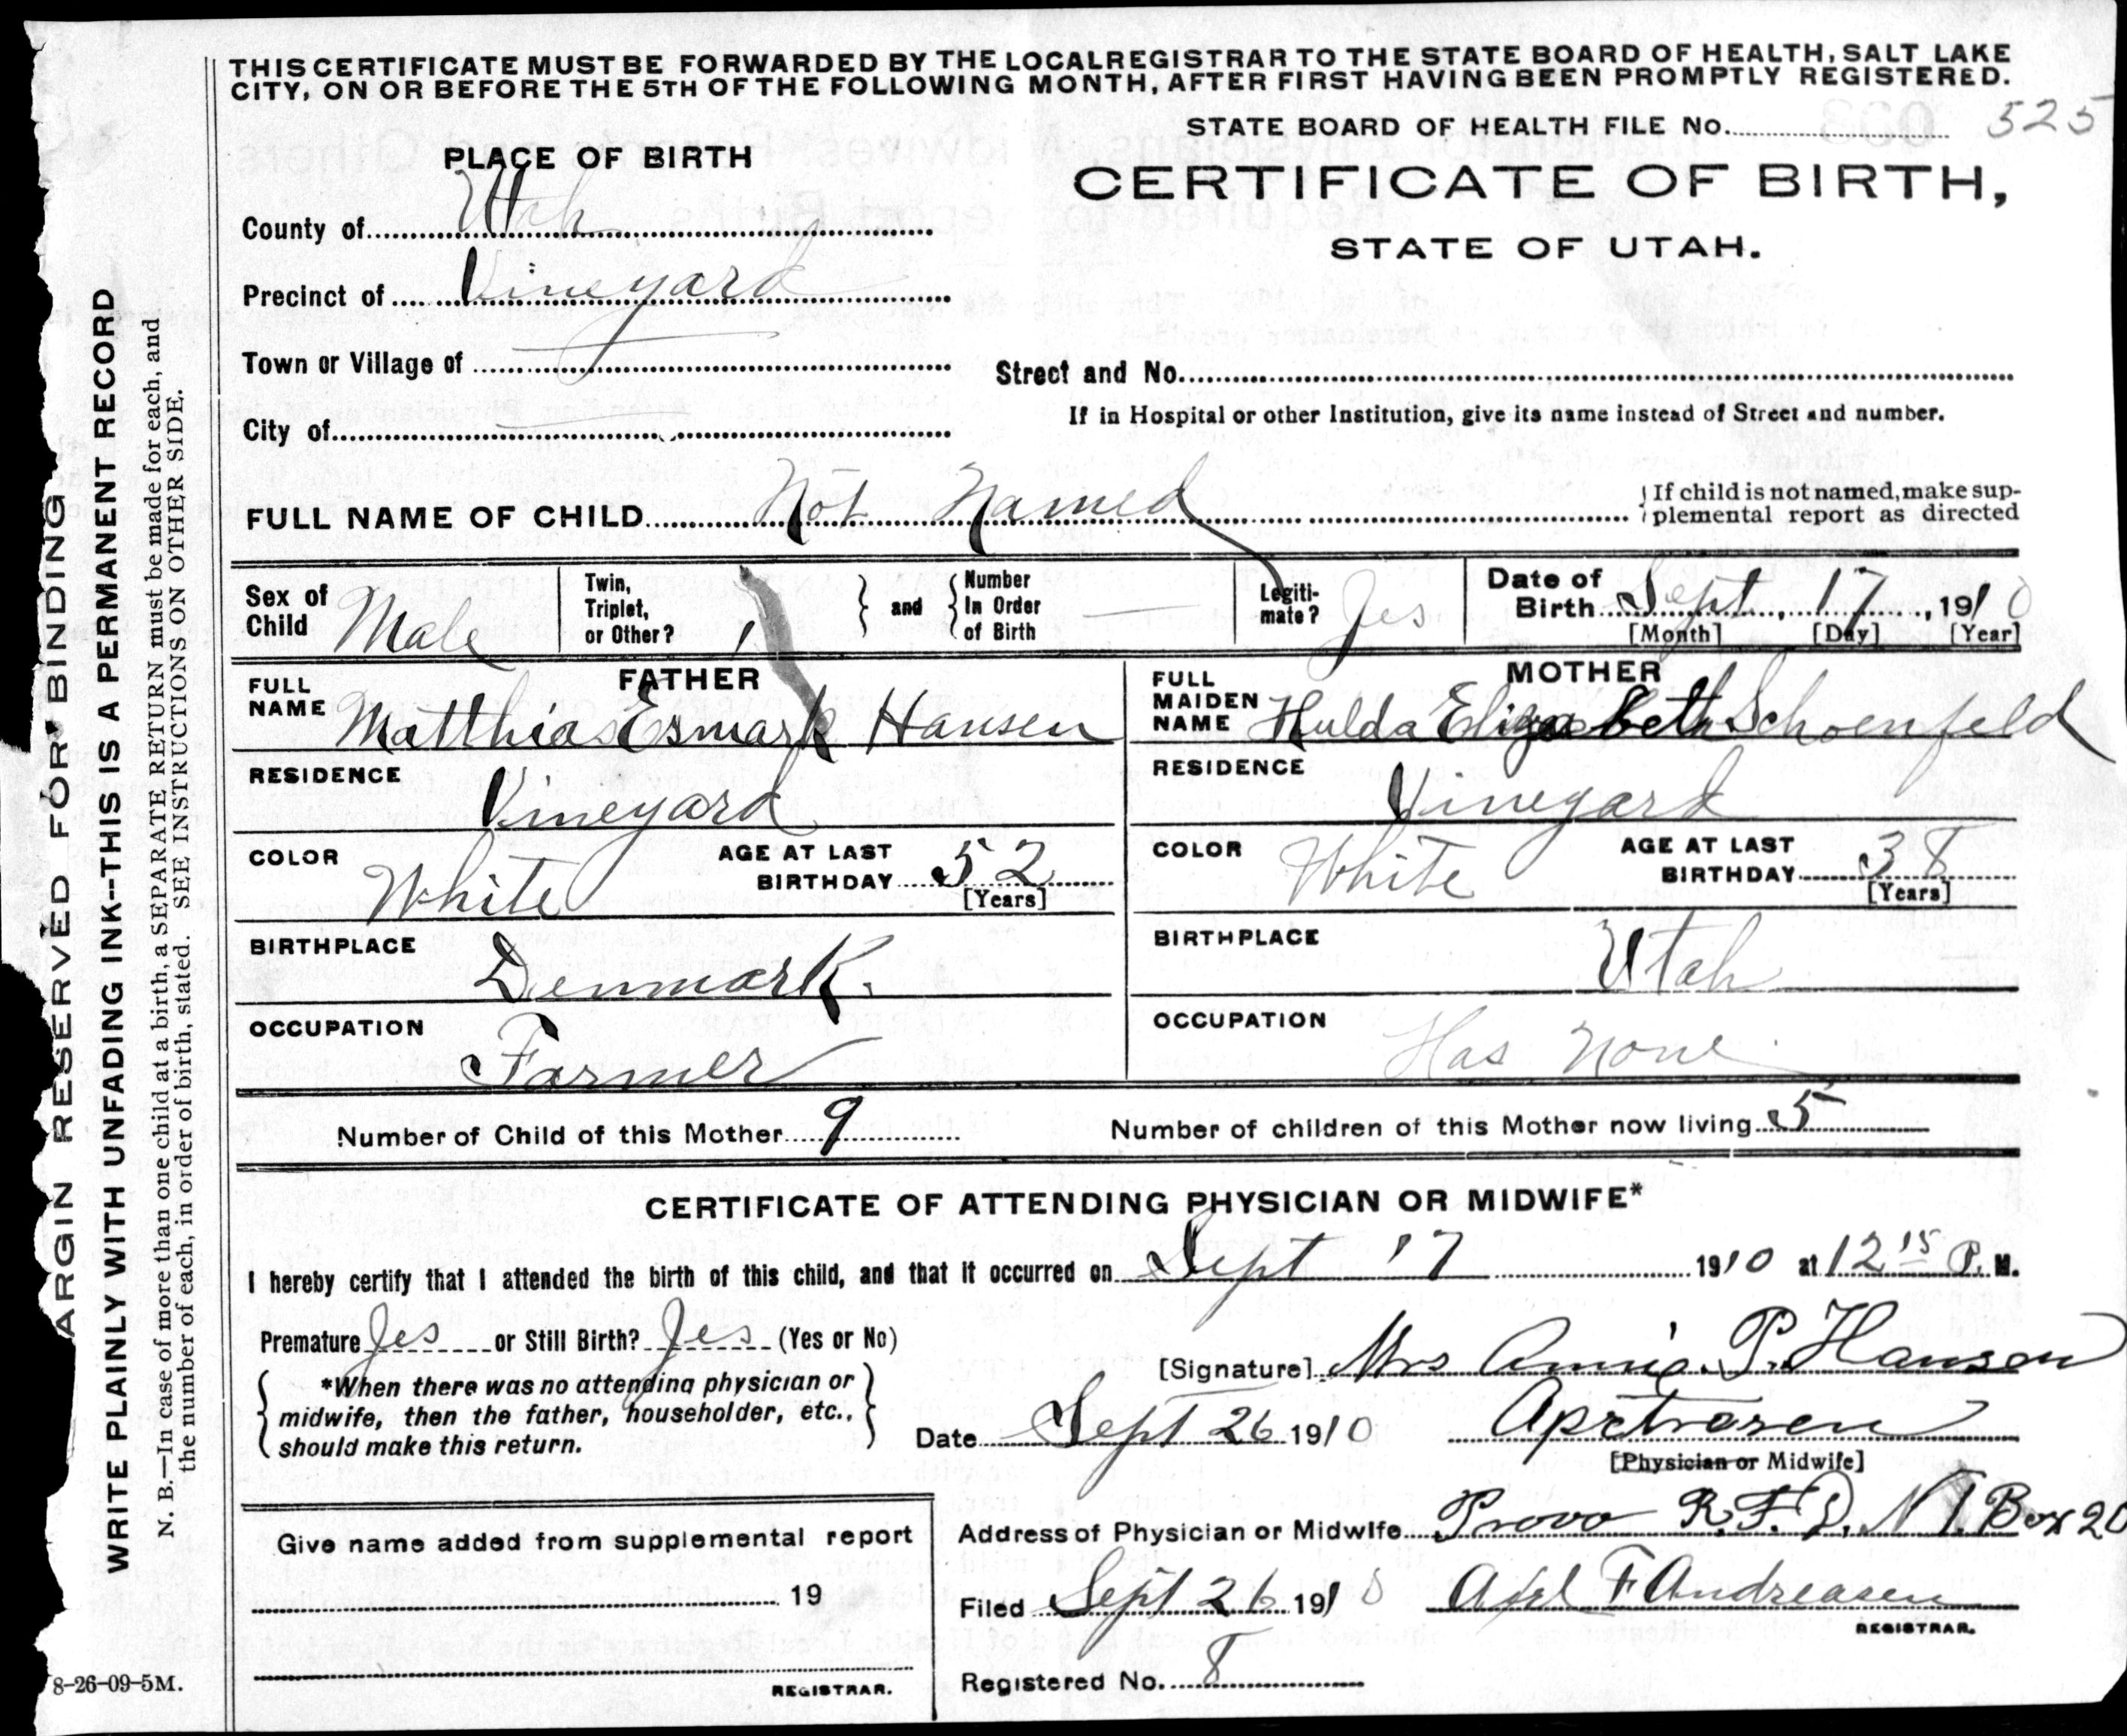 THIS CERTIFICATE MUST BE FORWARDED BY THE LOCAL REGISTRAR TO THE STATE BOARD OF HEALTH, SALT LAKE
CITY, ON OR BEFORE THE 5TH OF THE FOLLOWING MONTH, AFTER FIRST HAVING BEEN PROMPTLY REGISTERED.
STATE BOARD OF HEALTH FILE No. 525
PLACE OF BIRTH
CERTIFICATE OF BIRTH,
STATE OF UTAH.
County of Utah
Precinct of Vineyard
Town or Village of
Street and No.
City of
If in Hospital or other Institution, give its name instead of Street and number.
FULL NAME OF CHILD Not Named
If child is not named, make sup-
plemental report as directed
Sex of Child Male
Twin, Triplet, or Other? 1
and
Number In Order of Birth —
Legiti-
mate? Yes
Date of Birth Sept, 17, 1910
[Month] [Day] [Year]
FATHER
FULL NAME Matthias Esmark Hansen
MOTHER
FULL MAIDEN NAME Hulda Elizabeth Schoenfeld
RESIDENCE Vineyard
RESIDENCE Vineyard
COLOR White
AGE AT LAST BIRTHDAY 52
[Years]
COLOR White
AGE AT LAST BIRTHDAY 38
[Years]
BIRTHPLACE Denmark.
BIRTHPLACE Utah
OCCUPATION Farmer
OCCUPATION Has None
Number of Child of this Mother 9
Number of children of this Mother now living 5
CERTIFICATE OF ATTENDING PHYSICIAN OR MIDWIFE*
I hereby certify that I attended the birth of this child, and that it occurred on Sept 17 1910 at 12 15 P. M.
Premature Yes or Still Birth? Yes (Yes or No)
[Signature] Mrs Annie P. Hansen
*When there was no attending physician or
midwife, then the father, householder, etc.,
should make this return.
Date Sept 26 1910
[Physician or Midwife]
Address of Physician or Midwife Provo R.F.D. N 1. Box 20
Give name added from supplemental report
19
REGISTRAR.
Filed Sept 26 1910 Axel F Andreasen
REGISTRAR.
Registered No. 8
8-26-09-5M.
ARGIN RESERVED FOR BINDING
WRITE PLAINLY WITH UNFADING INK--THIS IS A PERMANENT RECORD
N. B.—In case of more than one child at a birth, a SEPARATE RETURN must be made for each, and
the number of each, in order of birth, stated. SEE INSTRUCTIONS ON OTHER SIDE.